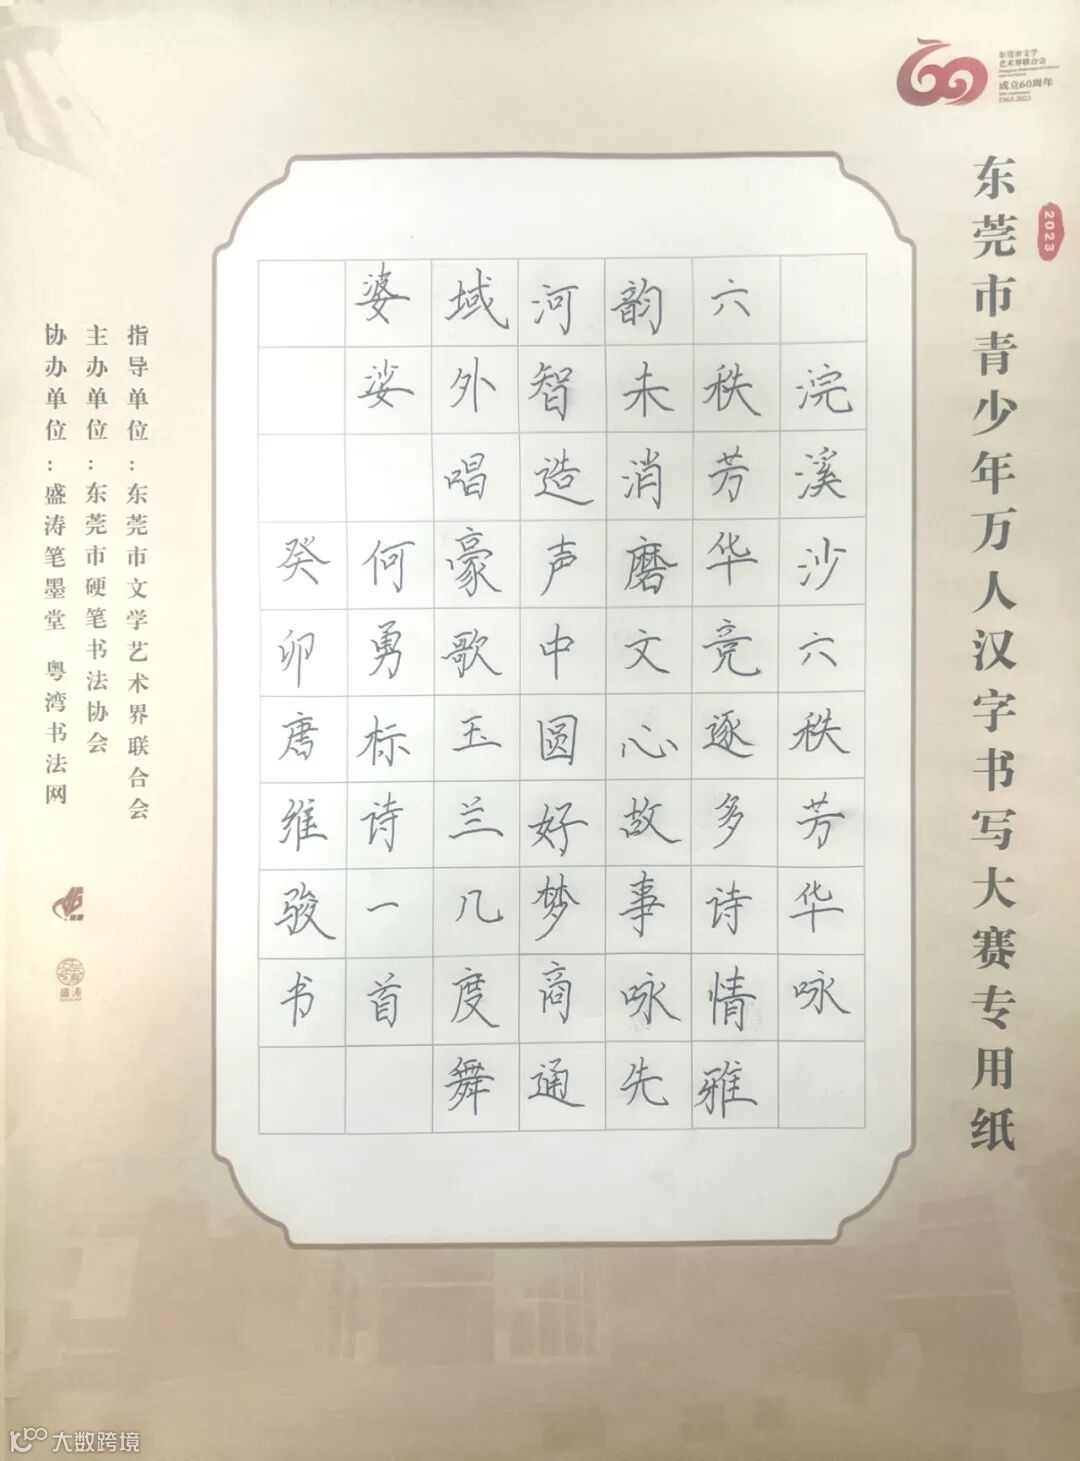 东莞市文学
艺术界联合会
成立60周年
1963-2023
2023
东莞市青少年万人汉字书写大赛专用纸
浣溪沙六秩芳华咏
六秩芳华竞逐多诗情雅
韵未消磨文心故事咏先
河智造声中圆好梦商通
域外唱豪歌玉兰几度舞
婆娑何勇标诗一首
癸卯唐维骏书
指导单位：东莞市文学艺术界联合会
主办单位：东莞市硬笔书法协会
协办单位：盛涛笔墨堂 粤湾书法网
盛涛
大数跨境